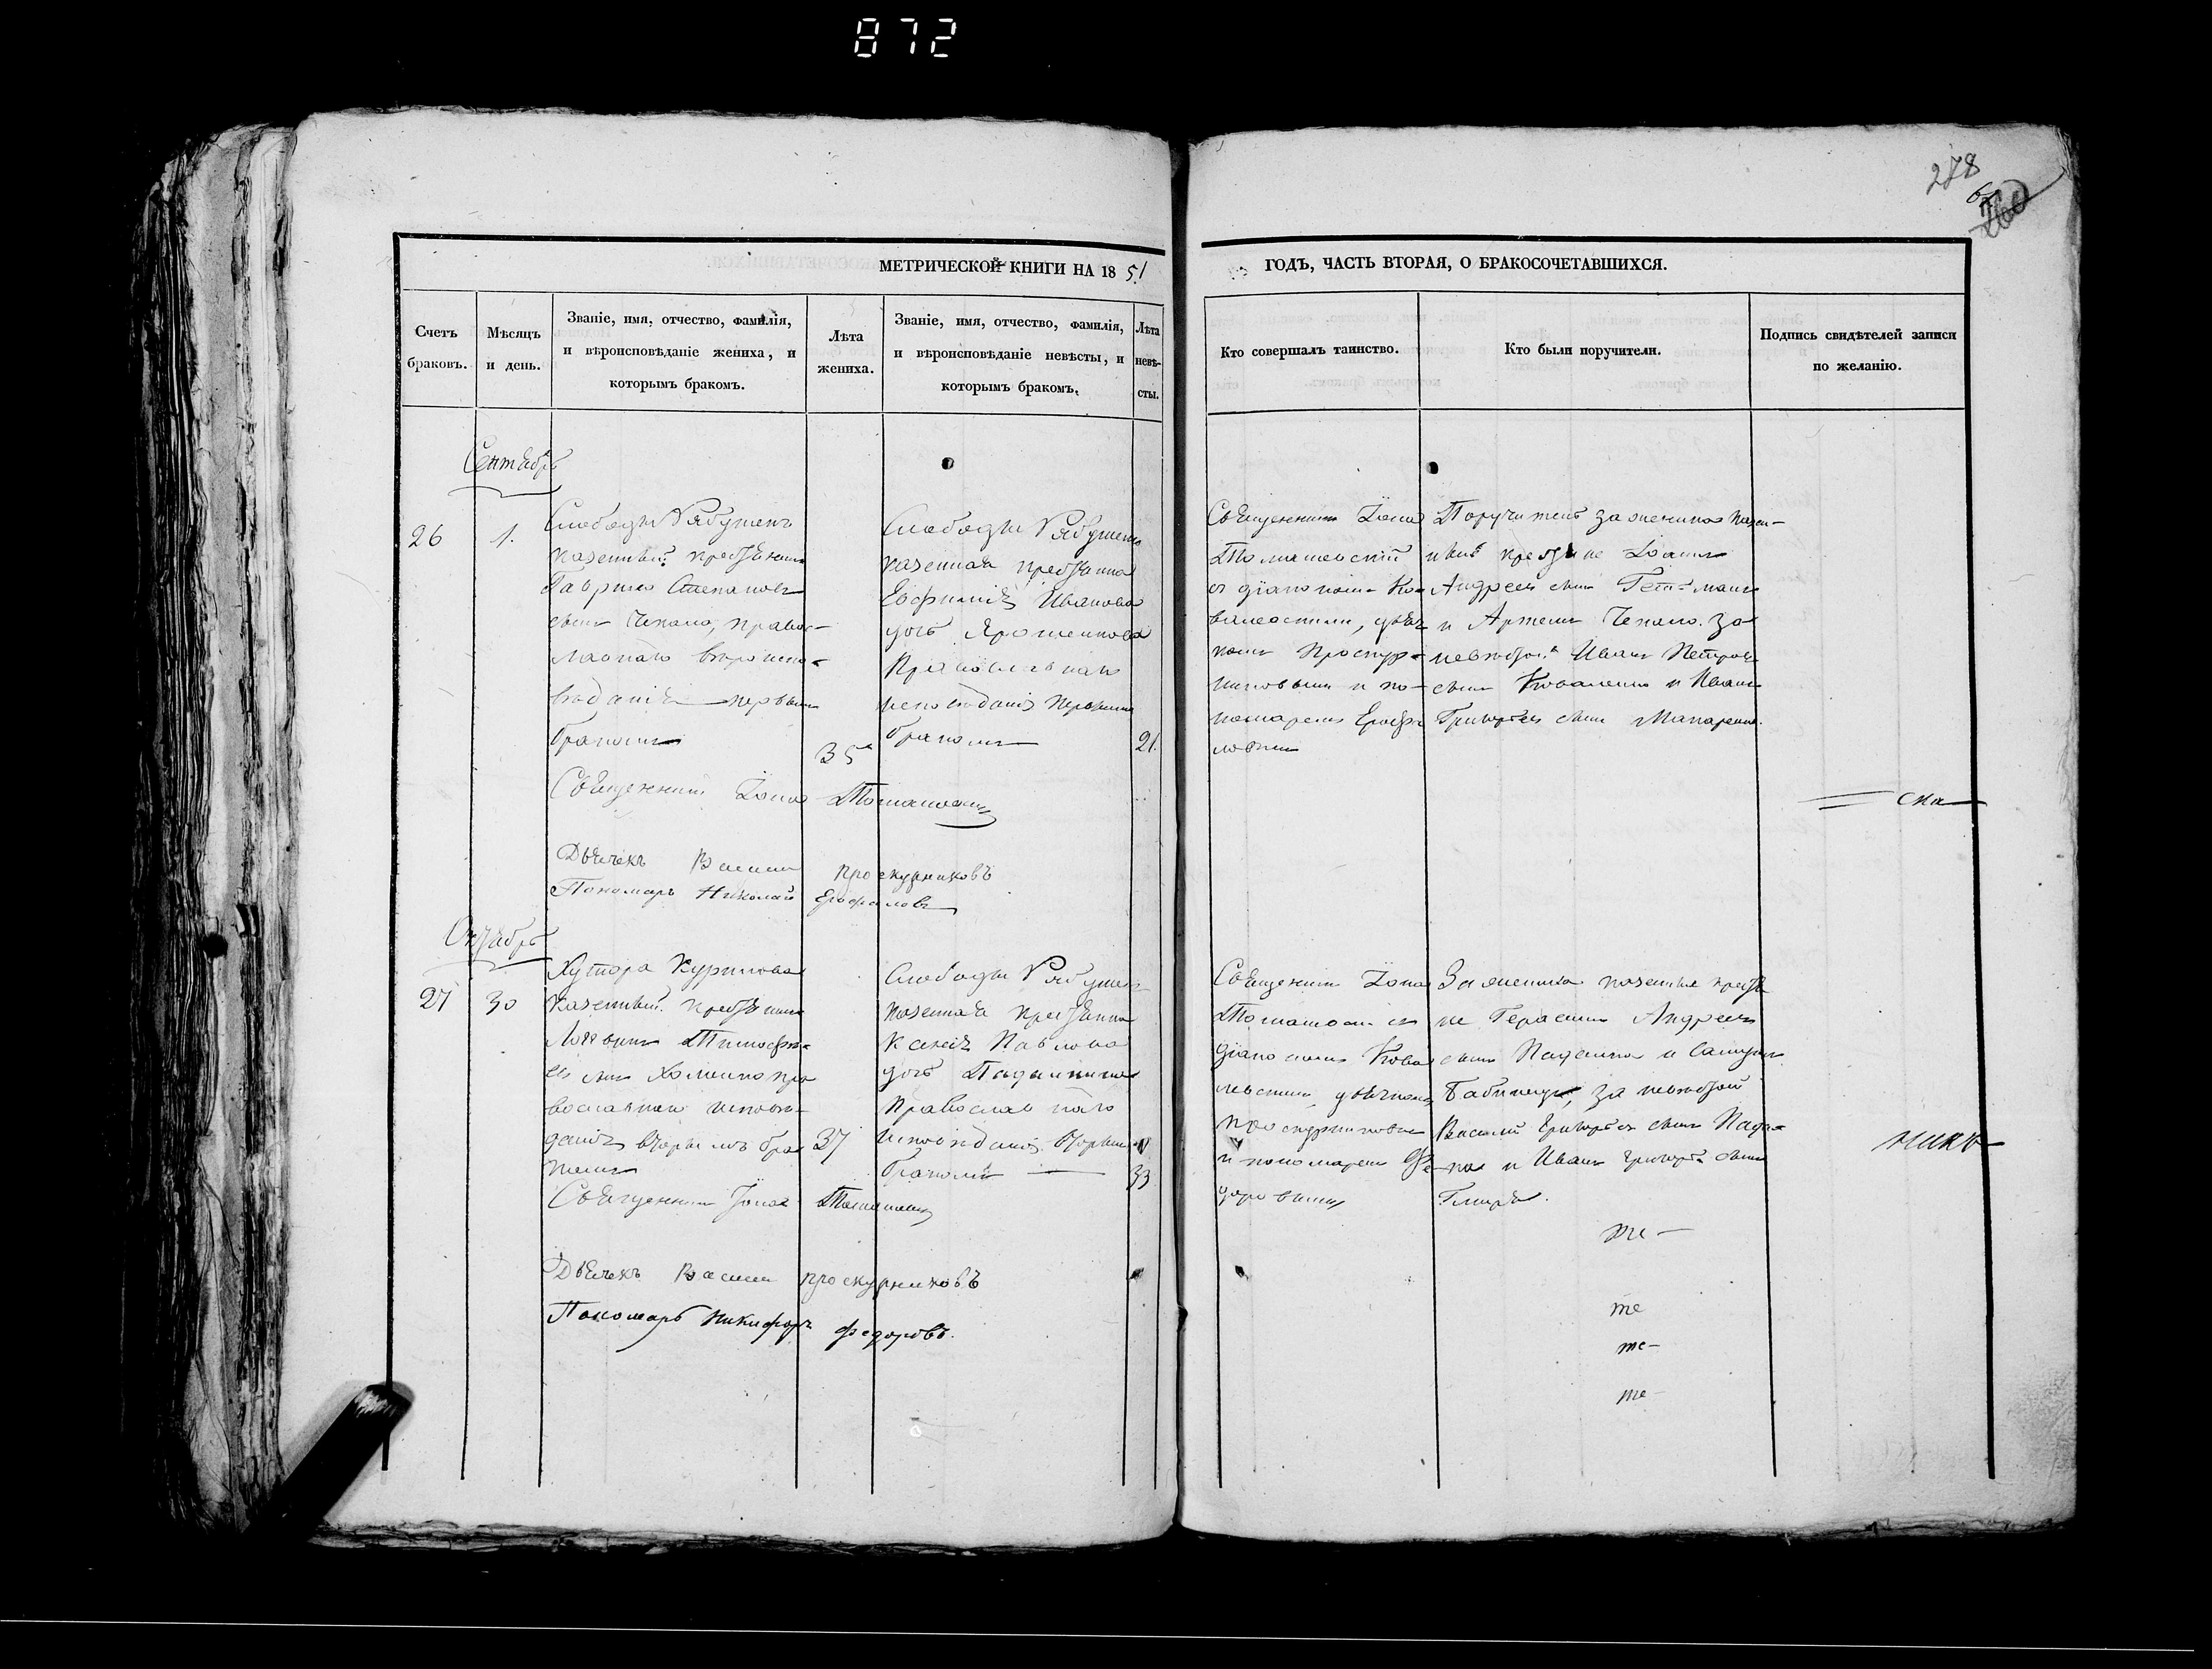 872
278
260
МЕТРИЧЕСКОЙ КНИГИ НА 1851
ГОДЪ, ЧАСТЬ ВТОРАЯ, О БРАКОСОЧЕТАВШИХСЯ.
Счетъ браковъ.
Мѣсяцъ и день.
Званіе, имя, отчество, фамилія,
и вѣроисповѣданіе жениха, и
которымъ бракомъ.
Лѣта жениха.
Званіе, имя, отчество, фамилія,
и вѣроисповѣданіе невѣсты, и
которымъ бракомъ.
Лѣта невѣ-сты.
Кто совершалъ таинство.
Кто были поручители.
Подпись свидѣтелей записи
по желанію.
Сентябрь
26
1.
Слободы Рябушекъ
казенный крестьянинъ
Гавріилъ Степановъ
сынъ Чекало, право-
славнаго вѣроиспо-
вѣданія первымъ
бракомъ
35
Слободы Рябушекъ
казенная крестьянка
Евфимія Иванова
дочь Ярошенкова
Православнаго
исповѣданія первымъ
бракомъ
21.
Священникъ Іона
Томашевскій
съ діакономъ Ко-
валевскимъ, дьяч-
комъ Проскур-
никовымъ и по-
номаремъ Ерофа
ловымъ
Поручители за жениха казен-
ные крестьяне Іоаннъ
Андреевъ сынъ Гетьманъ
и Артемъ Чекало. за
невѣстой Иванъ Петровъ
сынъ Коваленко и Иванъ
Григорьевъ сынъ Макаренко.
Священникъ Іона Томашевскій
ска
Дьячекъ Василій проскурниковъ
Пономарь Николай Ерофаловъ
Октябрь
27
30
Хутора Курилова
Казенный крестьянинъ
Логвинъ Тимофѣ-
евъ сынъ Хоменко пра
вославнаго исповѣ-
данія вторымъ бра
комъ
37
Слободы Рябушекъ
казенная крестьянка
Ксенія Павлова
дочь Падалкина
Православнаго
исповѣданія вторымъ
бракомъ
33
Священникъ Іона
Томашевскій съ
діакономъ Кова
левскимъ, дьячкомъ
проскурниковымъ
и пономаремъ Фе-
доровымъ
За жениха казенные крестья
не Герасимъ Андреевъ
сынъ Падалка и Самуилъ
Бабичъ, за невѣстой
Василій Григорьевъ сынъ Пада-
лка и Иванъ Григорьевъ сынъ
нико
Священникъ Іона Томашевскій
те
Дьячекъ Василій проскурниковъ
Пономарь Никифоръ Федоровъ.
те
те
те